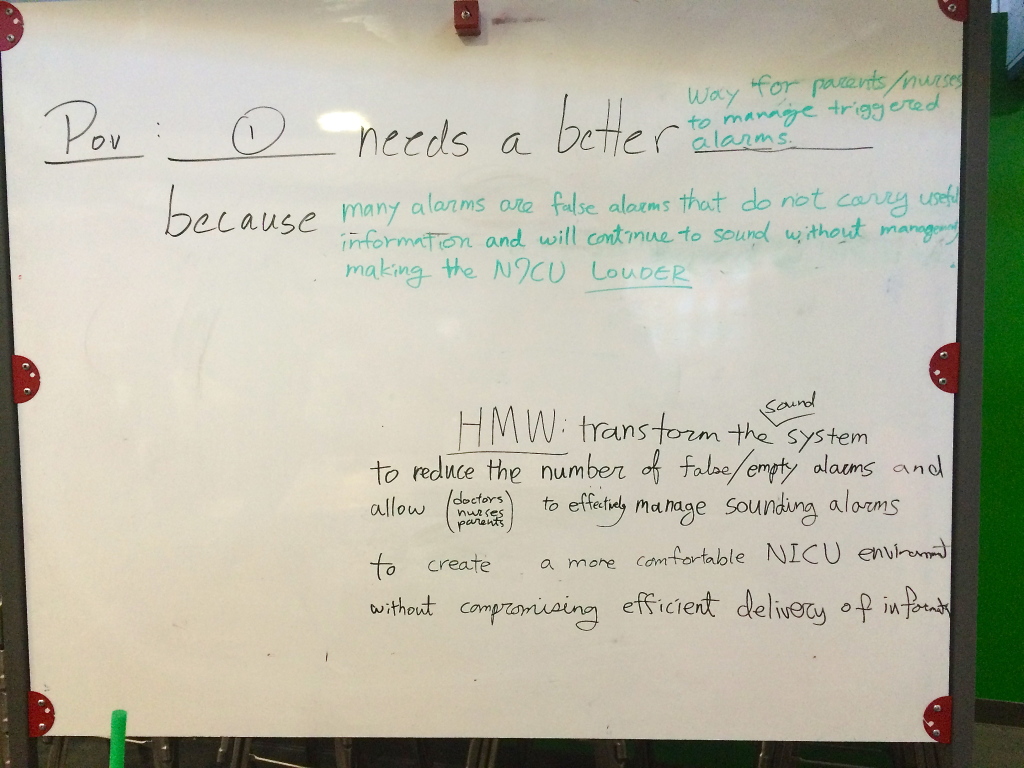 Pov: ① needs a better way for parents/nurses
to manage triggered
alarms.
because many alarms are false alarms that do not carry useful
information and will continue to sound without
making the NICU LOUDER
HMW: transform the sound system
to reduce the number of false/empty alarms and
allow (doctors
nurses
parents) to effectively manage sounding alarms
to create a more comfortable NICU
without compromising efficient delivery of